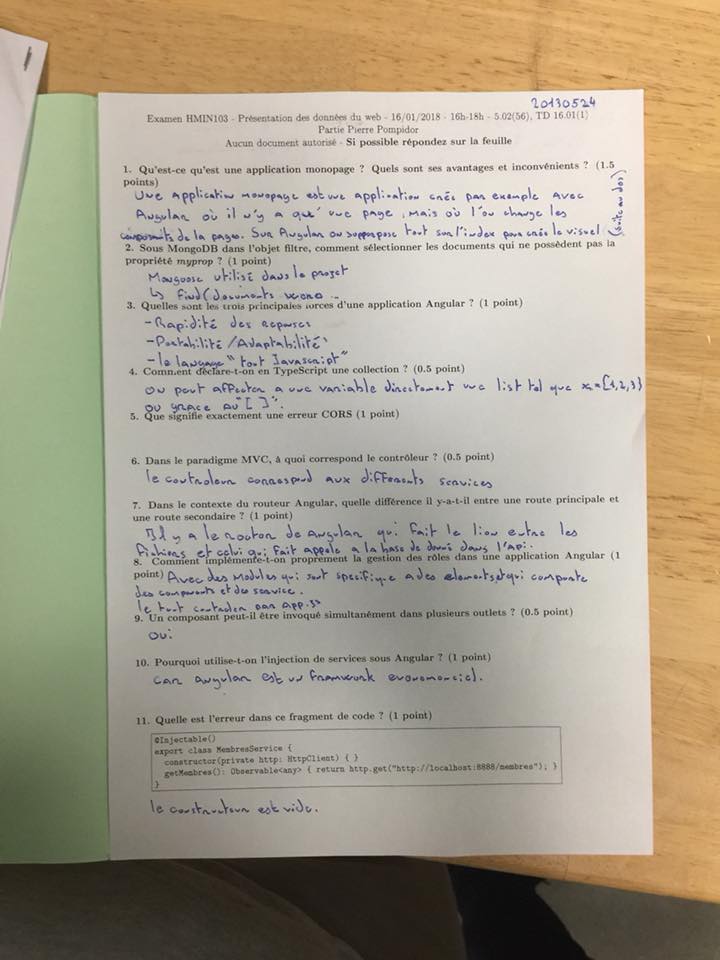 20130524
Examen HMIN103 - Présentation des données du web - 16/01/2018 - 16h-18h - 5.02(56), TD 16.01(1)
Partie Pierre Pompidor
Aucun document autorisé - Si possible répondez sur la feuille
1. Qu'est-ce qu'est une application monopage ? Quels sont ses avantages et inconvénients ? (1.5
points)
Une application monopage est une application crée par exemple avec
Angular où il n'y a que une page, mais où l'on change les
composants de la pages. Sur Angular on supperpose tout sur l'index pour crée le visuel
(suite au dos)
2. Sous MongoDB dans l'objet filtre, comment sélectionner les documents qui ne possèdent pas la
propriété myprop ? (1 point)
Mongoose utilisé dans le projet
↳ find(documents ...
3. Quelles sont les trois principales forces d'une application Angular ? (1 point)
- Rapidité des reponses
- Portabilité / Adaptabilité
- le language "tout Javascript"
4. Comment déclare-t-on en TypeScript une collection ? (0.5 point)
on peut affecter a une variable directement une list tel que x=[1,2,3]
ou grace au "[ ]".
5. Que signifie exactement une erreur CORS (1 point)
6. Dans le paradigme MVC, à quoi correspond le contrôleur ? (0.5 point)
le controleur correspond aux differents services
7. Dans le contexte du routeur Angular, quelle différence il y-a-t-il entre une route principale et
une route secondaire ? (1 point)
Il y a le routeur de angular qui fait le lien entre les
fichiers et celui qui fait appele a la base de donné dans l'api.
8. Comment implémente-t-on proprement la gestion des rôles dans une application Angular (1
point) Avec des Modules qui sont specifique a des elements et qui comporte
des components et des service.
le tout controler par App.ts
9. Un composant peut-il être invoqué simultanément dans plusieurs outlets ? (0.5 point)
oui
10. Pourquoi utilise-t-on l'injection de services sous Angular ? (1 point)
car angular est un framwork
11. Quelle est l'erreur dans ce fragment de code ? (1 point)
@Injectable()
export class MembresService {
constructor(private http: HttpClient) { }
getMembres(): Observable<any> { return http.get("http://localhost:8888/membres"); }
}
le constructeur est vide.